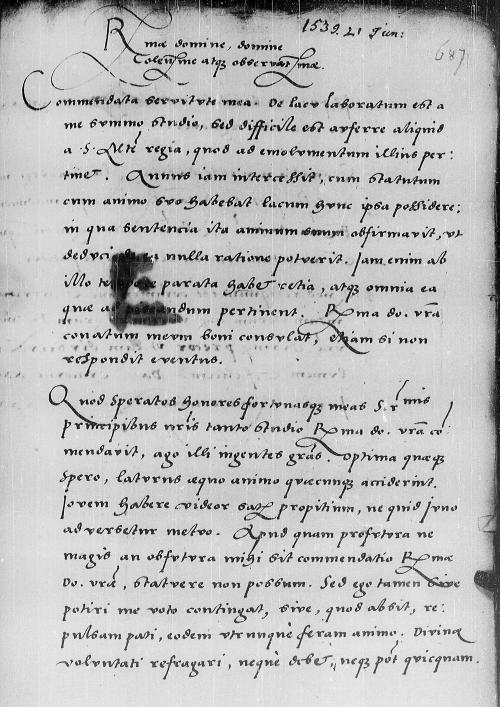 1539. 21 Jun:
687
Rmae domine, domine
Colenssme atqz observatssmae.
Commendata servitute mea. De lacu laboratum est a
me summo studio, sed difficile est auferre aliquid
a S. Mte regia, quod ad emolumentum illius per:
tinet. Annus iam intercessit, cum statutum
cum animo suo habebat lacum hunc ipsa possidere;
in qua sentencia ita animum suum obfirmavit, ut
deduci nulla ratione potuerit. Jam enim ab
illo tempore parata habet retia, atqz omnia ea
quae ad piscandum pertinent. Rma do. vra
conatum meum boni consulat, etiam si non
respondit eventus.
Quod speratos honores fortunasqz meas Sermis
principibus nris tanto studio Rma do. vra co
mendavit, ago illi ingentes gras. Optima quaeqz
spero, laturus aequo animo quaecunqz acciderint.
Jovem habere videor satis propitium, ne quid Juno
adversetur metuo. Apud quam profutura ne
magis an obfutura mihi sit commendatio Rmae
Do. vrae, statuere non possum. Sed ego tamen sive
potiri me voto contingat, sive, quod absit, re:
pulsam pati, eodem utrunque feram animo. Divinae
voluntati refragari, neque debet, neqz pot quicquam.